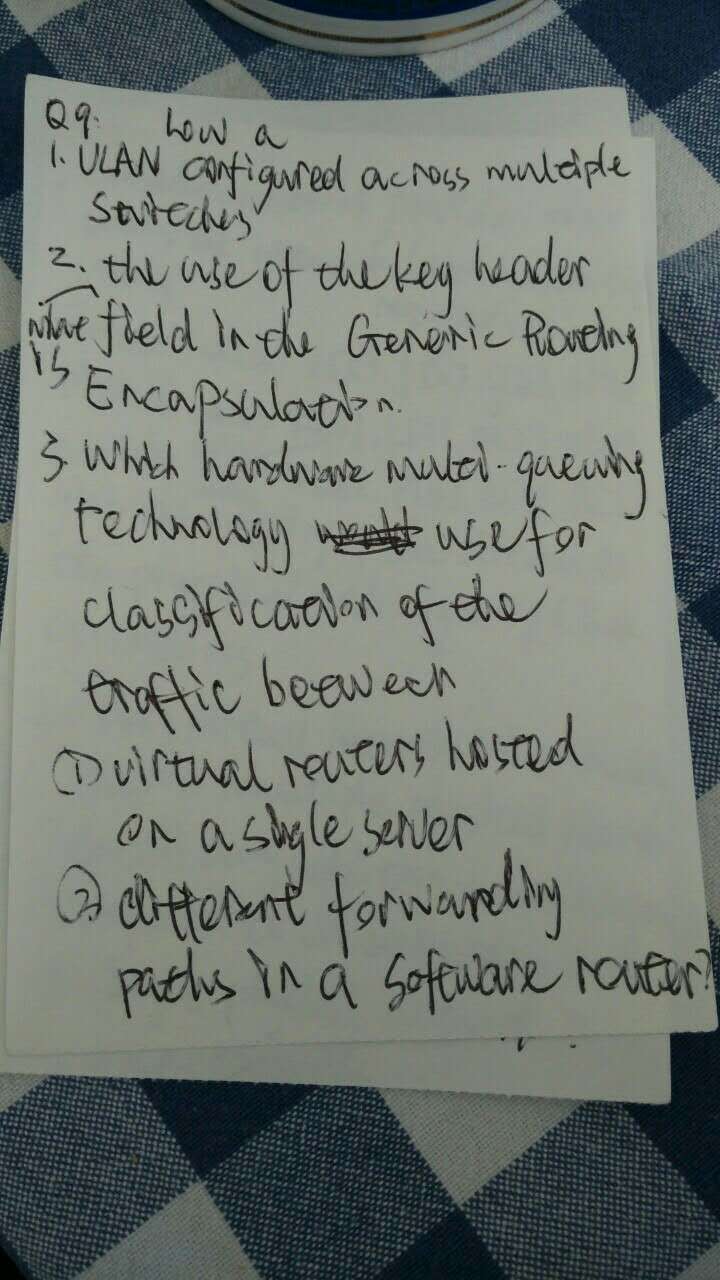 Q9. how a
1. VLAN configured across multiple
switches
2. the use of the key header
what field in the Generic Routing
is Encapsulation.
3. Which hardware multi-queuing
technology use for
classification of the
traffic between
① virtual routers hosted
on a single server
② different forwarding
paths in a software router?